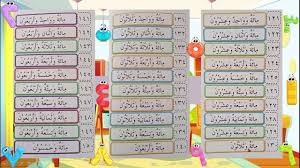 ١٢١ مِائَةٌ وَوَاحِدٌ وَعِشْرُونَ
١٢٢ مِائَةٌ وَاثْنَانِ وَعِشْرُونَ
١٢٣ مِائَةٌ وَثَلَاثَةٌ وَعِشْرُونَ
١٢٤ مِائَةٌ وَأَرْبَعَةٌ وَعِشْرُونَ
١٢٥ مِائَةٌ وَخَمْسَةٌ وَعِشْرُونَ
١٢٦ مِائَةٌ وَسِتَّةٌ وَعِشْرُونَ
١٢٧ مِائَةٌ وَسَبْعَةٌ وَعِشْرُونَ
١٢٨ مِائَةٌ وَثَمَانِيَةٌ وَعِشْرُونَ
١٢٩ مِائَةٌ وَتِسْعَةٌ وَعِشْرُونَ
١٣٠ مِائَةٌ وَثَلَاثُونَ
١٣١ مِائَةٌ وَوَاحِدٌ وَثَلَاثُونَ
١٣٢ مِائَةٌ وَاثْنَانِ وَثَلَاثُونَ
١٣٣ مِائَةٌ وَثَلَاثَةٌ وَثَلَاثُونَ
١٣٤ مِائَةٌ وَأَرْبَعَةٌ وَثَلَاثُونَ
١٣٥ مِائَةٌ وَخَمْسَةٌ وَثَلَاثُونَ
١٣٦ مِائَةٌ وَسِتَّةٌ وَثَلَاثُونَ
١٣٧ مِائَةٌ وَسَبْعَةٌ وَثَلَاثُونَ
١٣٨ مِائَةٌ وَثَمَانِيَةٌ وَثَلَاثُونَ
١٣٩ مِائَةٌ وَتِسْعَةٌ وَثَلَاثُونَ
١٤١ مِائَةٌ وَوَاحِدٌ وَأَرْبَعُونَ
١٤٢ مِائَةٌ وَاثْنَانِ وَأَرْبَعُونَ
١٤٣ مِائَةٌ وَثَلَاثَةٌ وَأَرْبَعُونَ
١٤٤ مِائَةٌ وَأَرْبَعَةٌ وَأَرْبَعُونَ
١٤٥ مِائَةٌ وَخَمْسَةٌ وَأَرْبَعُونَ
١٤٦ مِائَةٌ وَسِتَّةٌ وَأَرْبَعُونَ
١٤٧ مِائَةٌ وَسَبْعَةٌ وَأَرْبَعُونَ
١٤٨ مِائَةٌ وَثَمَانِيَةٌ وَأَرْبَعُونَ